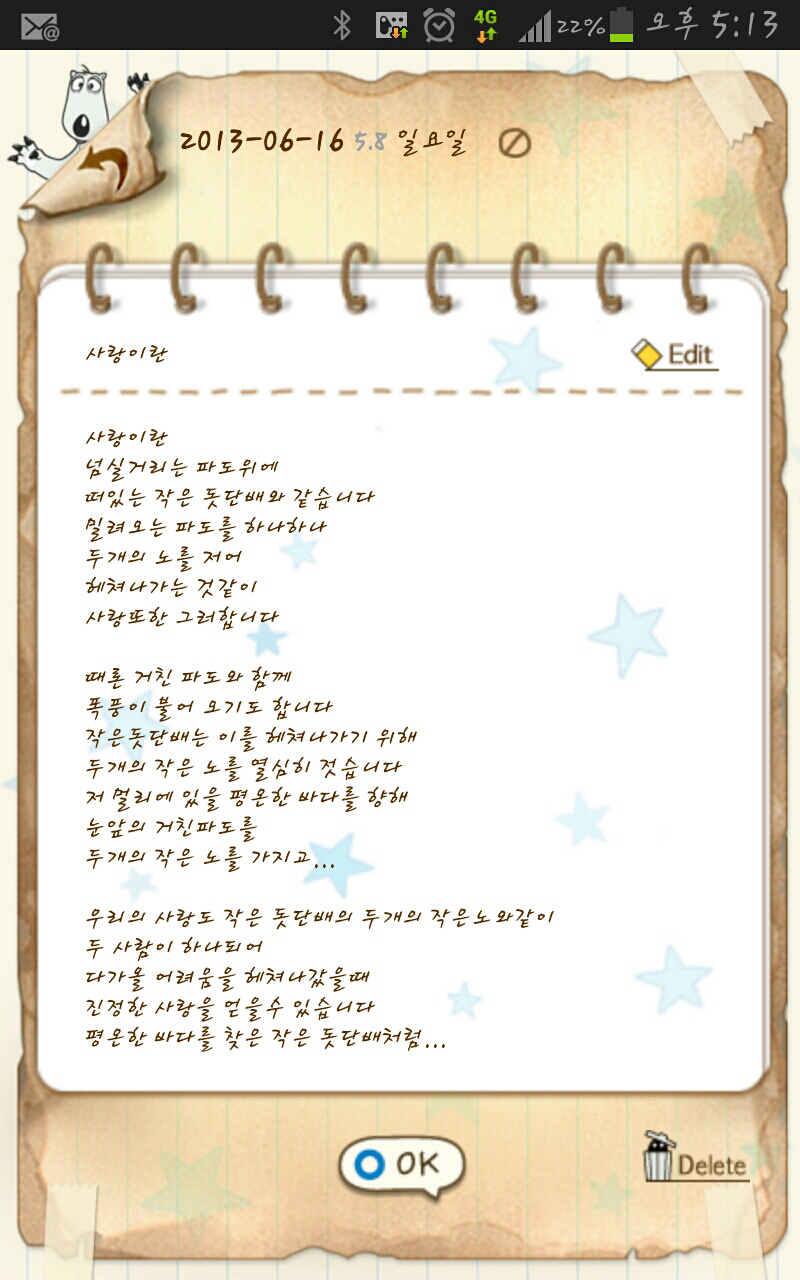 4G 22% 오후 5:13
2013-06-16 5.8 일요일
사랑이란
Edit
사랑이란
넘실거리는 파도위에
떠있는 작은 돛단배와 같습니다
밀려오는 파도를 하나하나
두개의 노를 저어
헤쳐나가는 것같이
사랑또한 그러합니다
때론 거친 파도와 함께
폭풍이 불어 오기도 합니다
작은돛단배는 이를 헤쳐나가기 위해
두개의 작은 노를 열심히 젓습니다
저 멀리에 있을 평온한 바다를 향해
눈앞의 거친파도를
두개의 작은 노를 가지고...
우리의 사랑도 작은 돛단배의 두개의 작은노와같이
두 사람이 하나되어
다가올 어려움을 헤쳐나갔을때
진정한 사랑을 얻을수 있습니다
평온한 바다를 찾은 작은 돛단배처럼...
OK
Delete